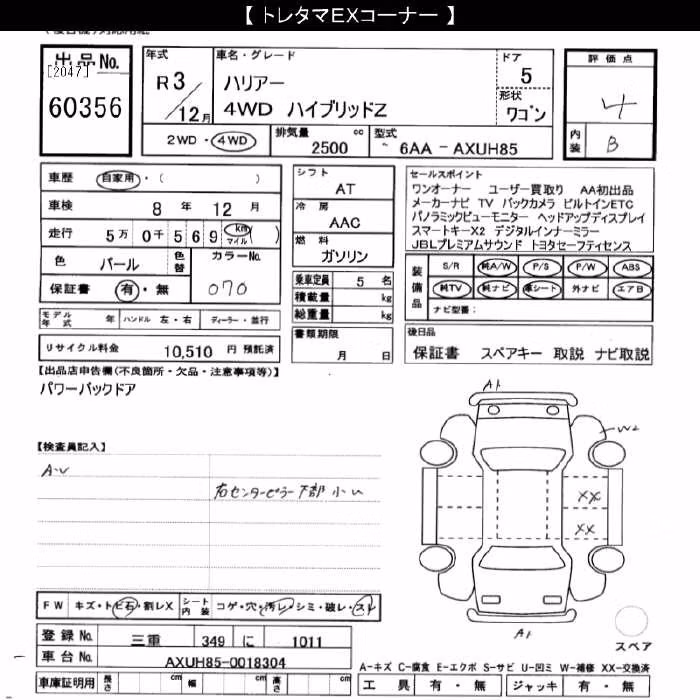 【トレタマEXコーナー】
出品No.
[2047]
60356
年式
R3/12月
車名・グレード
ハリアー
4WD ハイブリッドZ
ドア
5
形状
ワゴン
評価点
4
内装
B
2WD・4WD
排気量 cc
2500
型式
6AA - AXUH85
車歴 自家用・( )
車検 8年 12月
走行 5万 0千 5 6 9 km マイル ( )
色 パール 色替 カラーNo. 070
保証書 有・無
シフト
AT
冷房
AAC
燃料
ガソリン
乗車定員 5 名
積載量 kg
総重量 kg
書類期限
月 日
セールスポイント
ワンオーナー ユーザー買取り AA初出品
メーカーナビ TV バックカメラ ビルトインETC
パノラミックビューモニター ヘッドアップディスプレイ
スマートキーX2 デジタルインナーミラー
JBLプレミアムサウンド トヨタセーフティセンス
装備品
S/R 純A/W P/S P/W ABS
純TV 純ナビ 革シート 外ナビ エアB
ナビ型番:
モデル年式 年 ハンドル 左・右 ディーラー・並行
リサイクル料金 10,510 円 預託済
後日品
保証書 スペアキー 取説 ナビ取説
【出品店申告欄(不良箇所・欠品・注意事項等)】
パワーバックドア
【検査員記入】
A-U
右センターピラー下部 小U
A1
W2
XX
XX
A1
スペア
FW キズ・トビ石・割レX シート内装 コゲ・穴・汚レ・シミ・破レ・スレ
登録No. 三重 349 に 1011
車台No. AXUH85-0018304
車庫証明用 長さ cm 幅 cm 高さ cm
A-キズ C-腐食 E-エクボ S-サビ U-凹ミ W-補修 XX-交換済
工具 有・無 ジャッキ 有・無